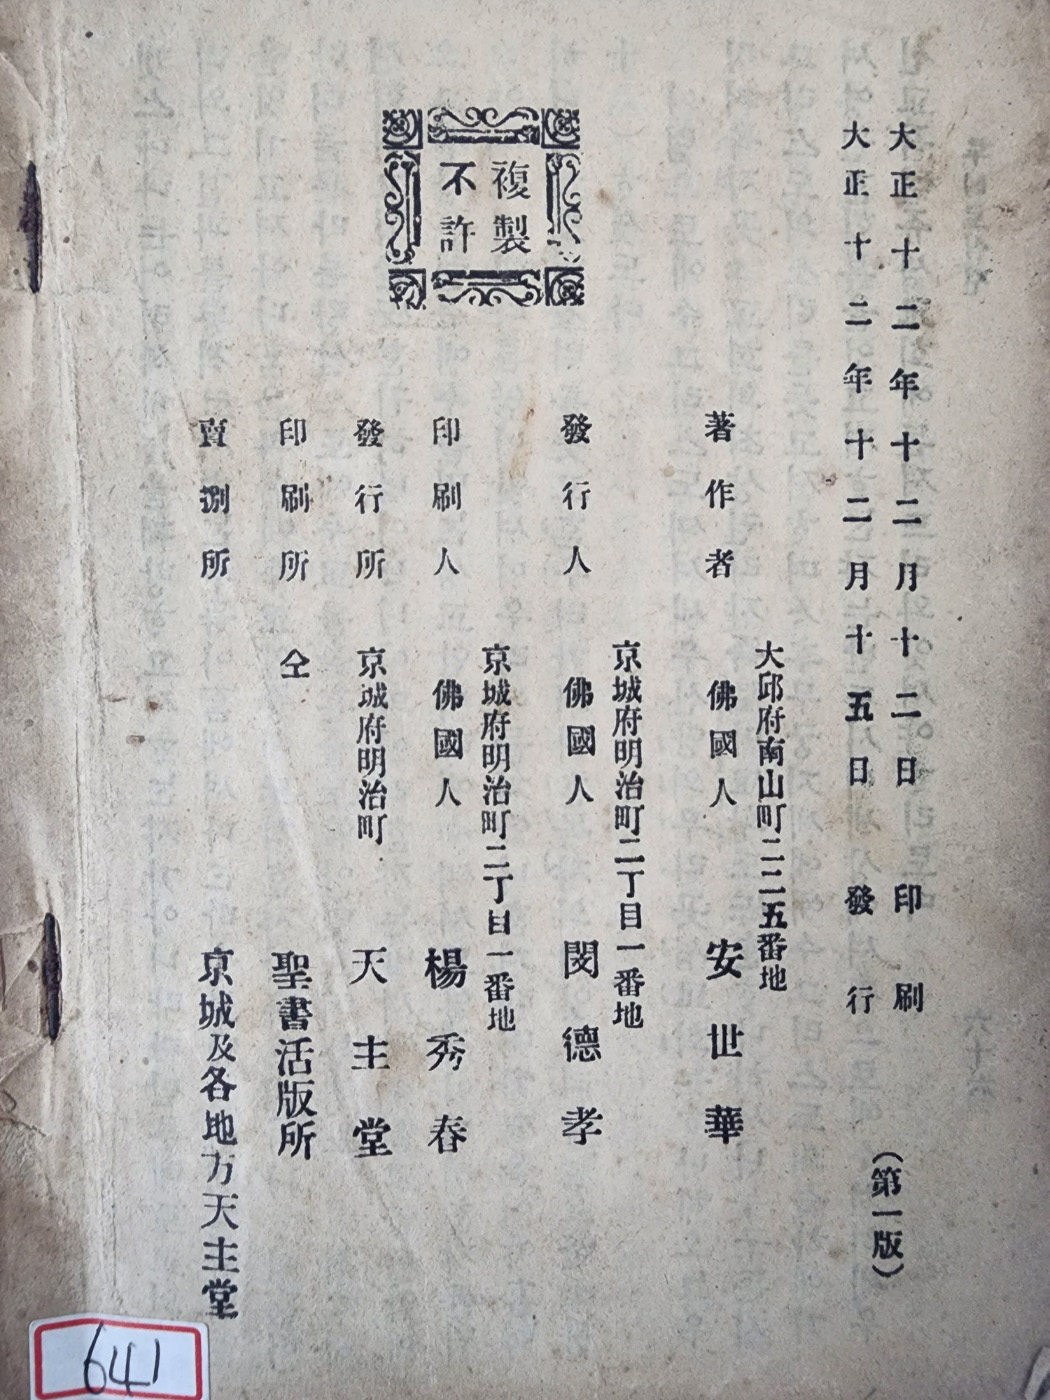 大正十二年十二月十二日 印刷
大正十二年十二月十五日 發行
(第一版)
大邱府南山町二二五番地
著作者 佛國人 安世華
京城府明治町二丁目一番地
發行人 佛國人 閔德孝
京城府明治町二丁目一番地
印刷人 佛國人 楊秀春
發行所 京城府明治町 天主堂
印刷所 仝 聖書活版所
賣捌所 京城及各地方天主堂
複製
不許
641